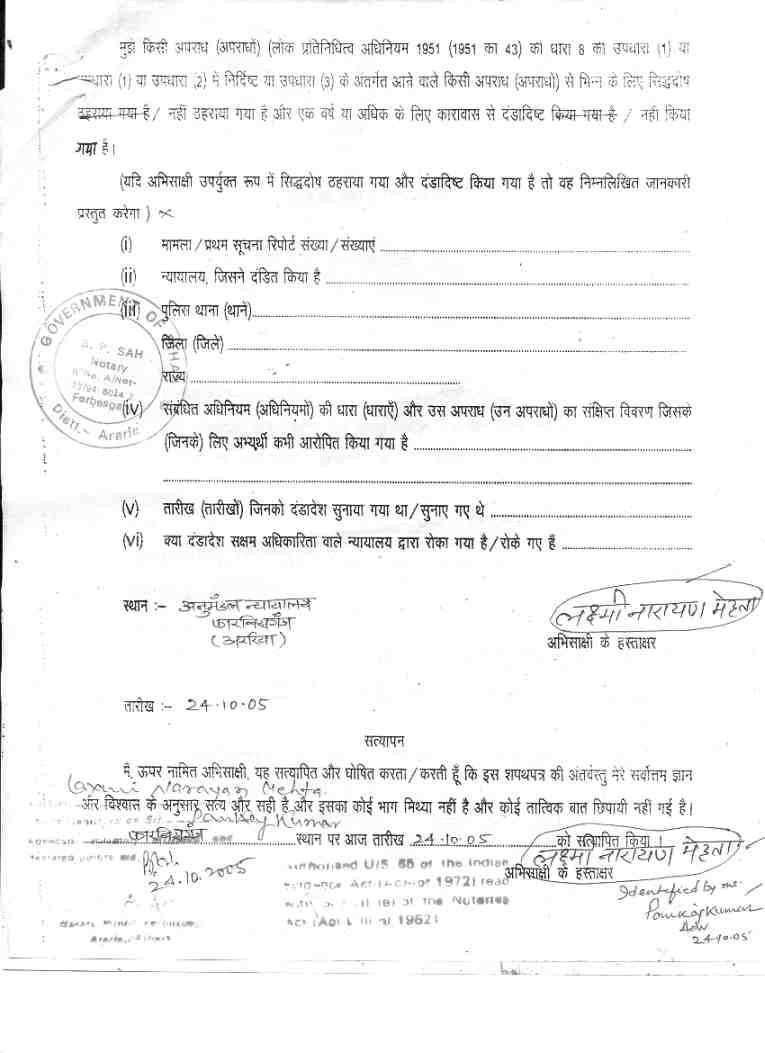 मुझे किसी अपराध (अपराधों) (लोक प्रतिनिधित्व अधिनियम 1951 (1951 का 43) की धारा 8 की उपधारा (1) या
(1) या उपधारा (2) में निर्दिष्ट या उपधारा (3) के अंतर्गत आने वाले किसी अपराध (अपराधों) से भिन्न के लिए सिद्धदोष
ठहराया गया है / नहीं ठहराया गया है और एक वर्ष या अधिक के लिए कारावास से दंडादिष्ट किया गया है / नहीं किया
गया है।
(यदि अभिसाक्षी उपर्युक्त रूप में सिद्धदोष ठहराया गया और दंडादिष्ट किया गया है तो वह निम्नलिखित जानकारी
प्रस्तुत करेगा )
(i) मामला / प्रथम सूचना रिपोर्ट संख्या / संख्याएं
(ii) न्यायालय, जिसने दंडित किया है
(iii) पुलिस थाना (थाने)
जिला (जिले)
राज्य
GOVERNMENT OF
B. P. SAH
Notary
Distt.- Araria
(iv) संबंधित अधिनियम (अधिनियमों) की धारा (धाराएँ) और उस अपराध (उन अपराधों) का संक्षिप्त विवरण जिसके
(जिनके) लिए अभ्यर्थी कभी आरोपित किया गया है
(v) तारीख (तारीखों) जिनको दंडादेश सुनाया गया था / सुनाए गए थे
(vi) क्या दंडादेश सक्षम अधिकारिता वाले न्यायालय द्वारा रोका गया है / रोके गए हैं
स्थान :- अनुमंडल न्यायालय
फारबिसगंज
(अररिया)
लक्ष्मी नारायण मेहता
अभिसाक्षी के हस्ताक्षर
तारीख :- 24.10.05
सत्यापन
मैं, ऊपर नामित अभिसाक्षी, यह सत्यापित और घोषित करता / करती हूँ कि इस शपथपत्र की अंतर्वस्तु मेरे सर्वोत्तम ज्ञान
Laxmi Narayan Mehta
और विश्वास के अनुसार सत्य और सही है और इसका कोई भाग मिथ्या नहीं है और कोई तात्विक बात छिपायी नहीं गई है।
Pankaj Kumar
फारबिसगंज स्थान पर आज तारीख 24.10.05 को सत्यापित किया।
लक्ष्मी नारायण मेहता
अभिसाक्षी के हस्ताक्षर
24.10.2005
U/S of the Indian
1972) read
of the Notaries
1962)
Identified by me
Pankaj Kumar
Adv
24.10.05